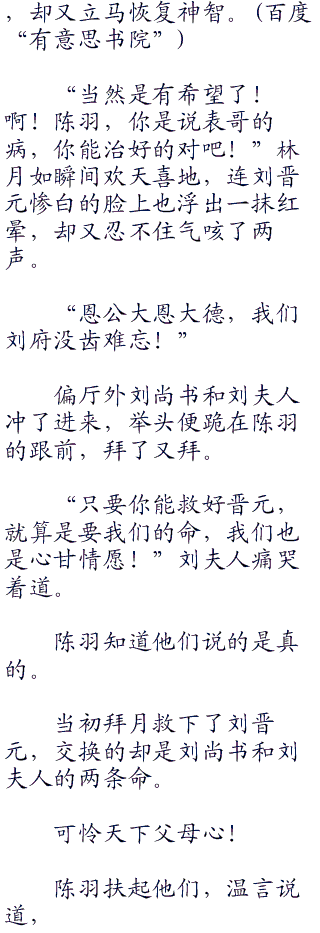 ，却又立马恢复神智。(百度
“有意思书院”)
“当然是有希望了！
啊！陈羽，你是说表哥的
病，你能治好的对吧！”林
月如瞬间欢天喜地，连刘晋
元惨白的脸上也浮出一抹红
晕，却又忍不住气咳了两
声。
“恩公大恩大德，我们
刘府没齿难忘！”
偏厅外刘尚书和刘夫人
冲了进来，举头便跪在陈羽
的跟前，拜了又拜。
“只要你能救好晋元，
就算是要我们的命，我们也
是心甘情愿！”刘夫人痛哭
着道。
陈羽知道他们说的是真
的。
当初拜月救下了刘晋
元，交换的却是刘尚书和刘
夫人的两条命。
可怜天下父母心！
陈羽扶起他们，温言说
道，